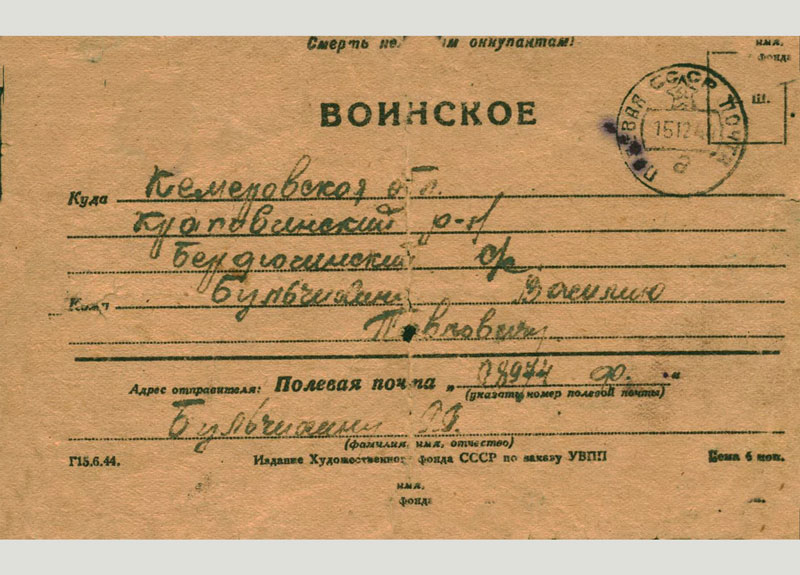 Смерть не ким оккупантам!
имя.
фонда
Ш.
ПОЛЕВАЯ СССР ПОЧТА
15124
а
ВОИНСКОЕ
Куда Кемеровская обл.
Крапивинский р-н
Бердюгинский с/с
Кому Василию
Павловичу
Адрес отправителя: Полевая почта „08974 ф.“
(указать номер полевой почты)
(фамилия, имя, отчество)
Г15.6.44. Издание Художественног фонда СССР по заказу УВПП Цена 5 коп.
имя.
фонда